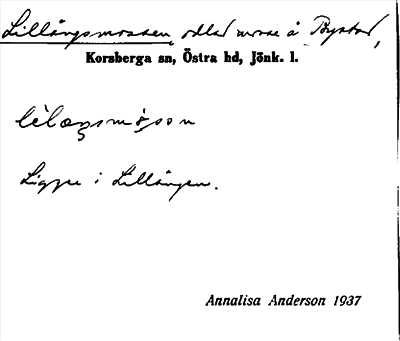 Lillängsmossen, odlad mosse å Bystad,
Korsberga sn, Östra hd, Jönk. l.
Ligger i Lillängen.
Annalisa Anderson 1937